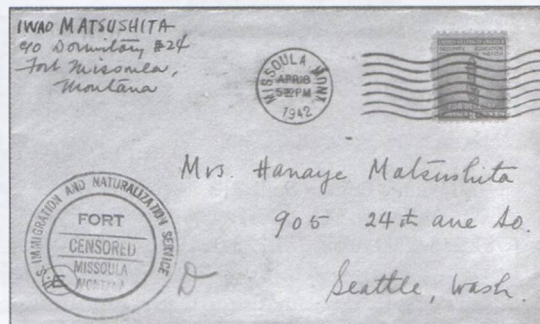 IWAO MATSUSHITA
c/o Dormitory #24
Fort Missoula,
Montana
MISSOULA, MONT.
APR 8
5 PM
1942
UNITED STATES OF AMERICA
Mrs. Hanaye Matsushita
905 24th ave So.
Seattle, Wash.
U.S. IMMIGRATION AND NATURALIZATION SERVICE
FORT
CENSORED
MISSOULA
MONTANA
D